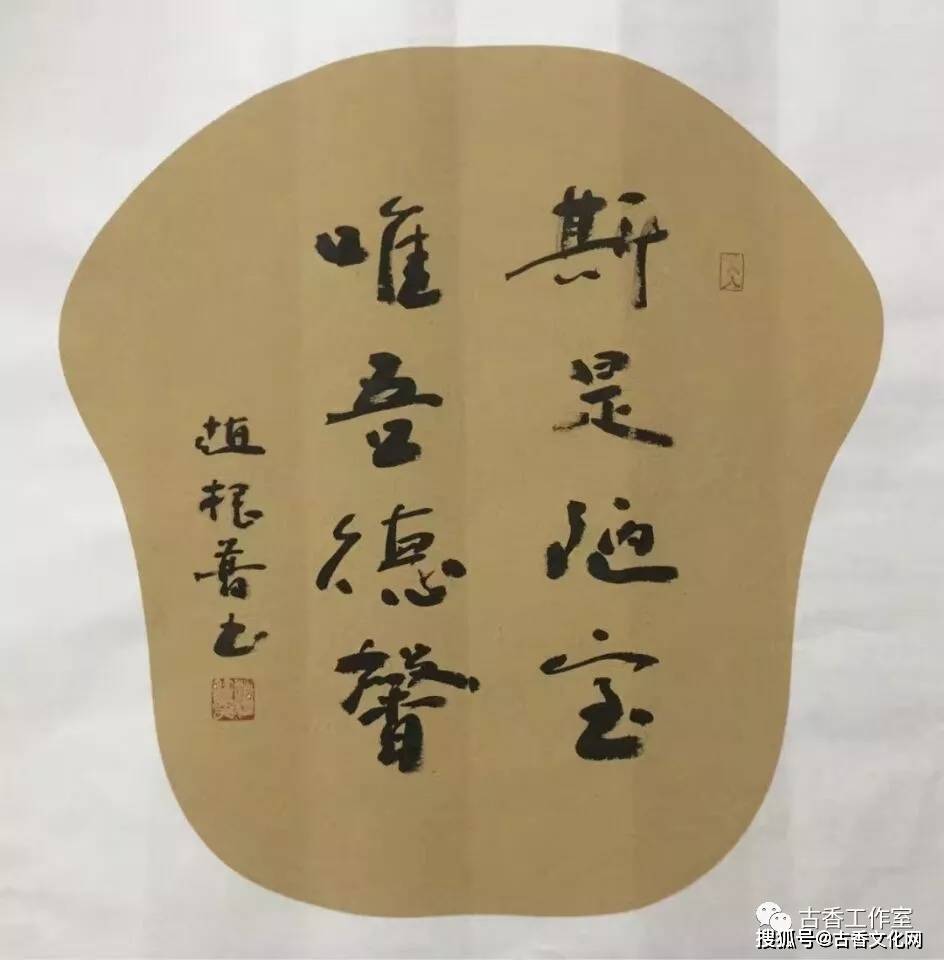 斯是陋室
唯吾德馨
趙根普书
古香工作室
搜狐号@古香文化网